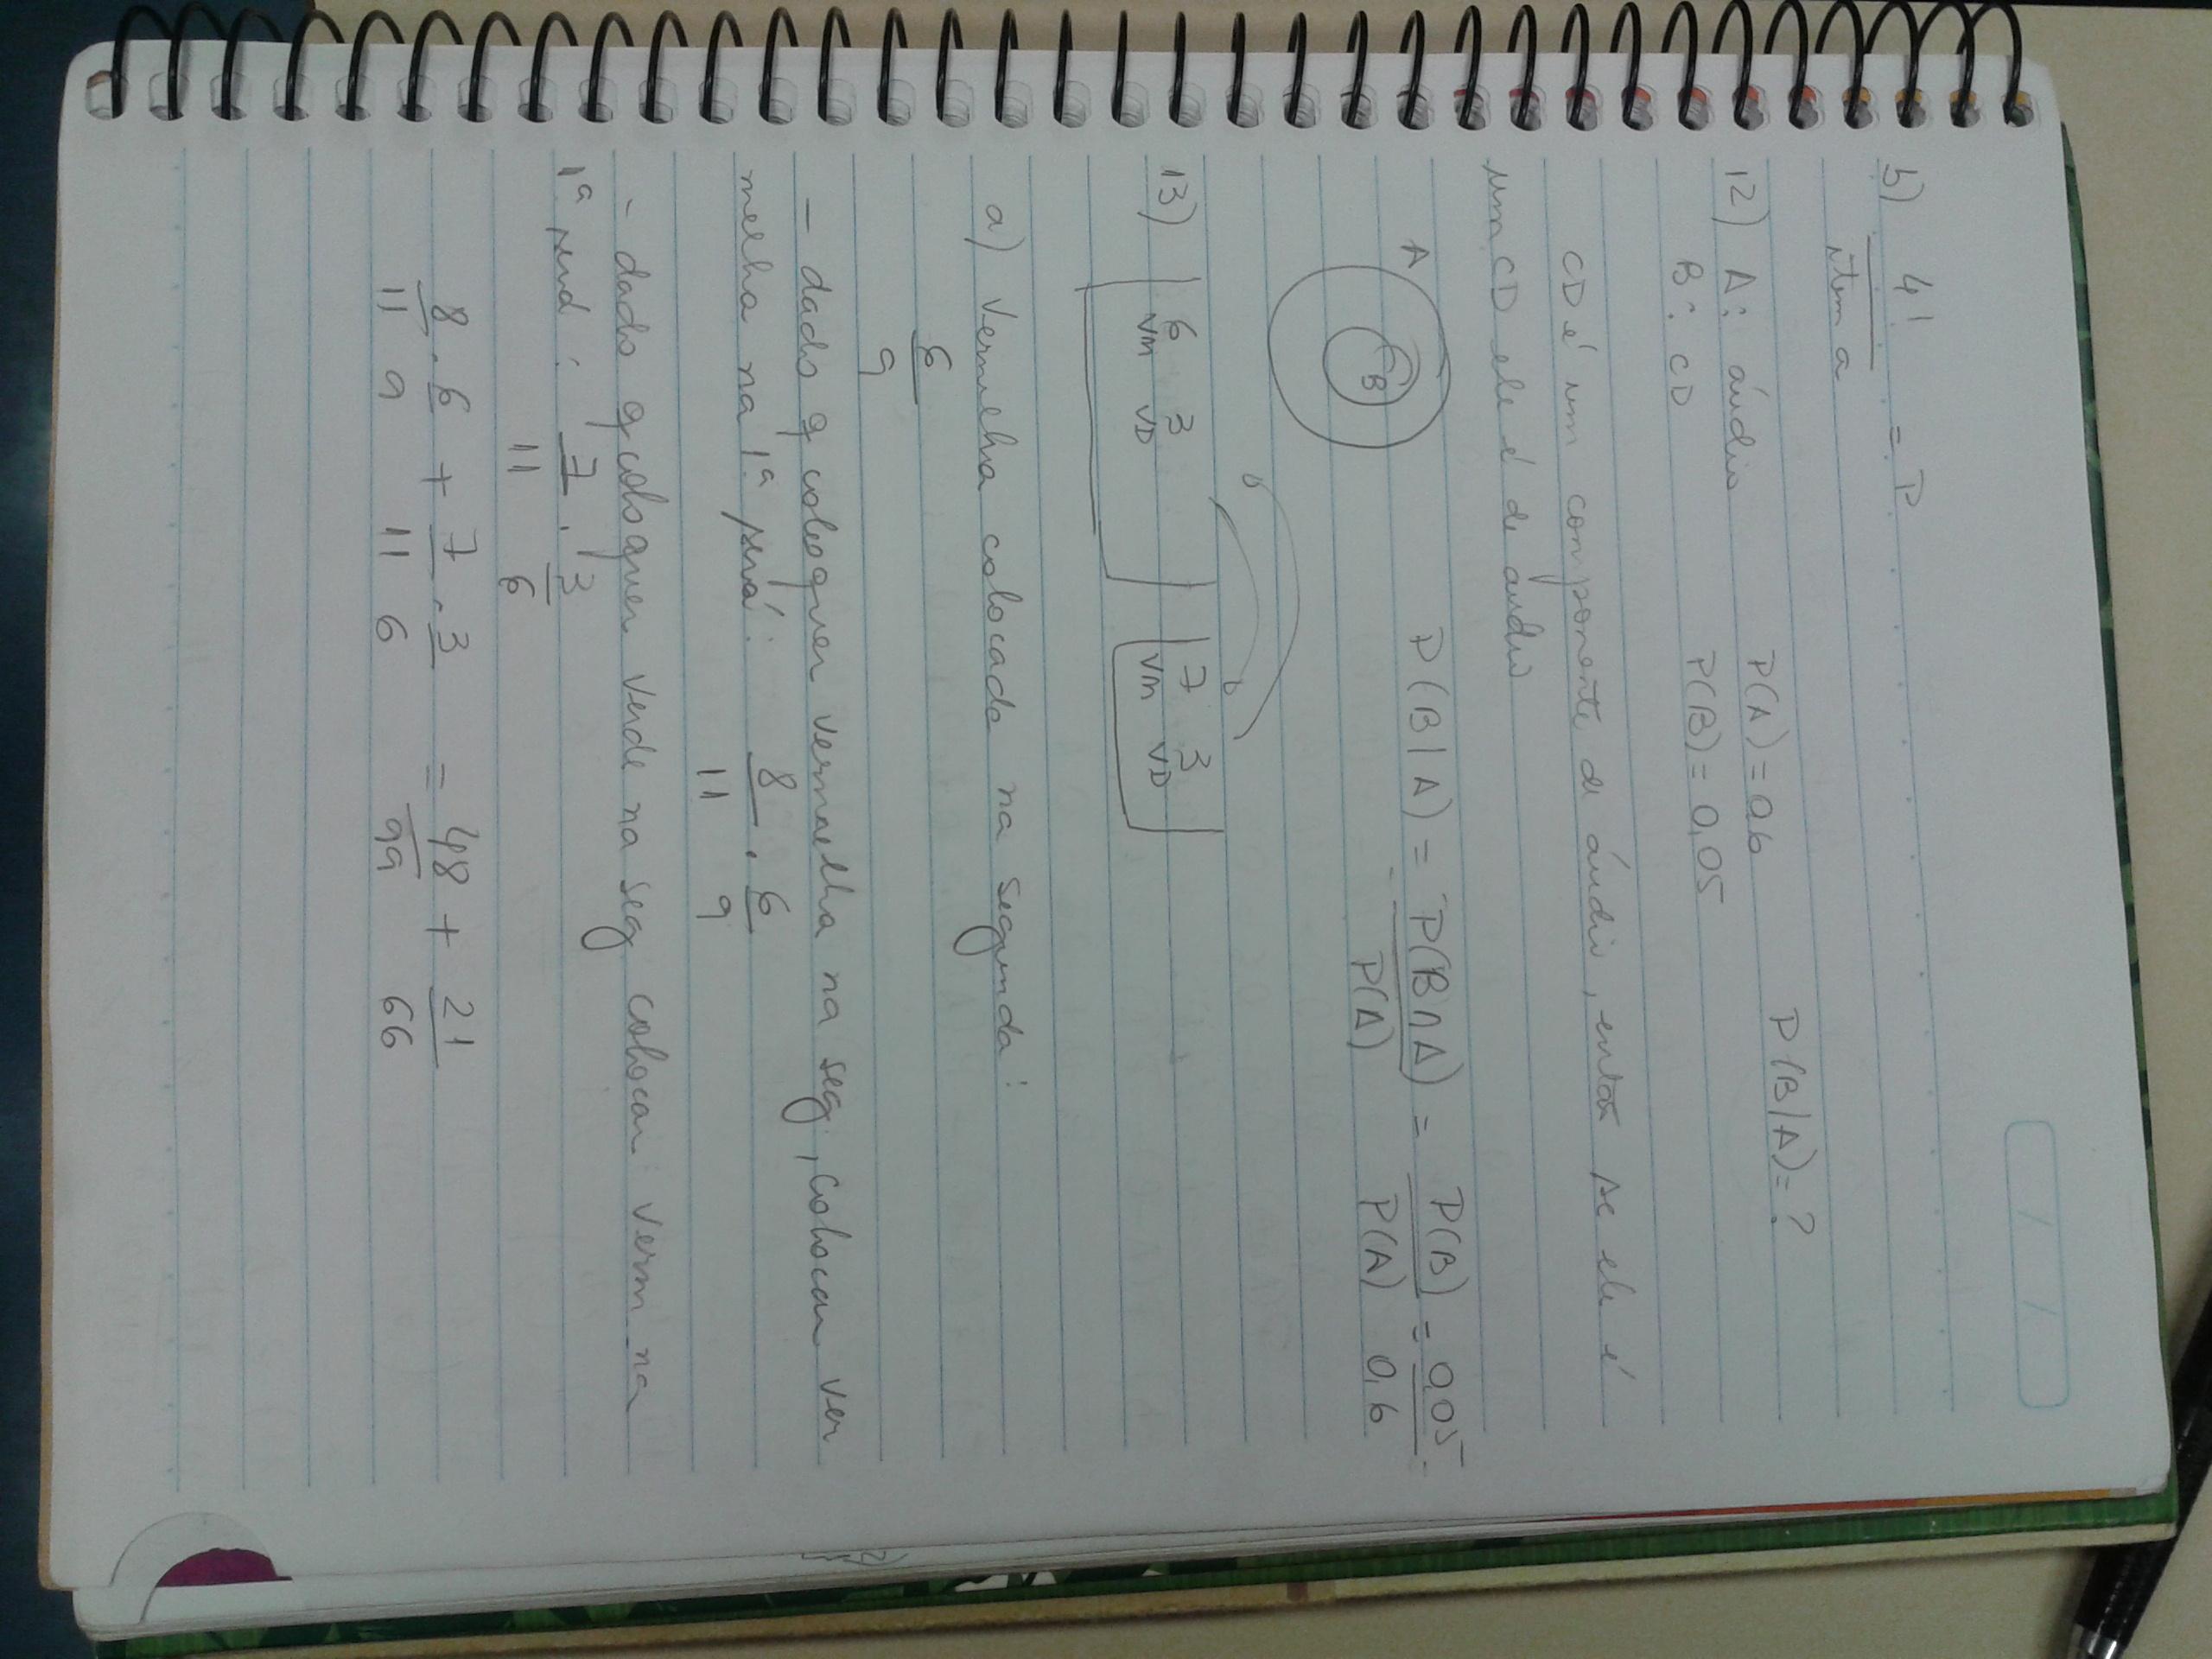 b) 4! = P
item a
12) A: áudio P(A) = 0,6 P(B|A) = ?
B: CD P(B) = 0,05
CD é um componente de áudio, então se ele é
um CD ele é de áudio
A B P(B|A) = P(B∩A) = P(B) = 0,05
P(A) P(A) 0,6
13) 6 3 7 3
VM VD VM VD
a) Vermelha colocada na segunda:
6
9
- dado q coloquei vermelha na seg, colocar ver
melha na 1ª será: 8/11 . 6/9
- dado q coloquei verde na seg colocar verm na
1ª será: 7/11 . 3/6
8/11 . 6/9 + 7/11 . 3/6 = 48/99 + 21/66